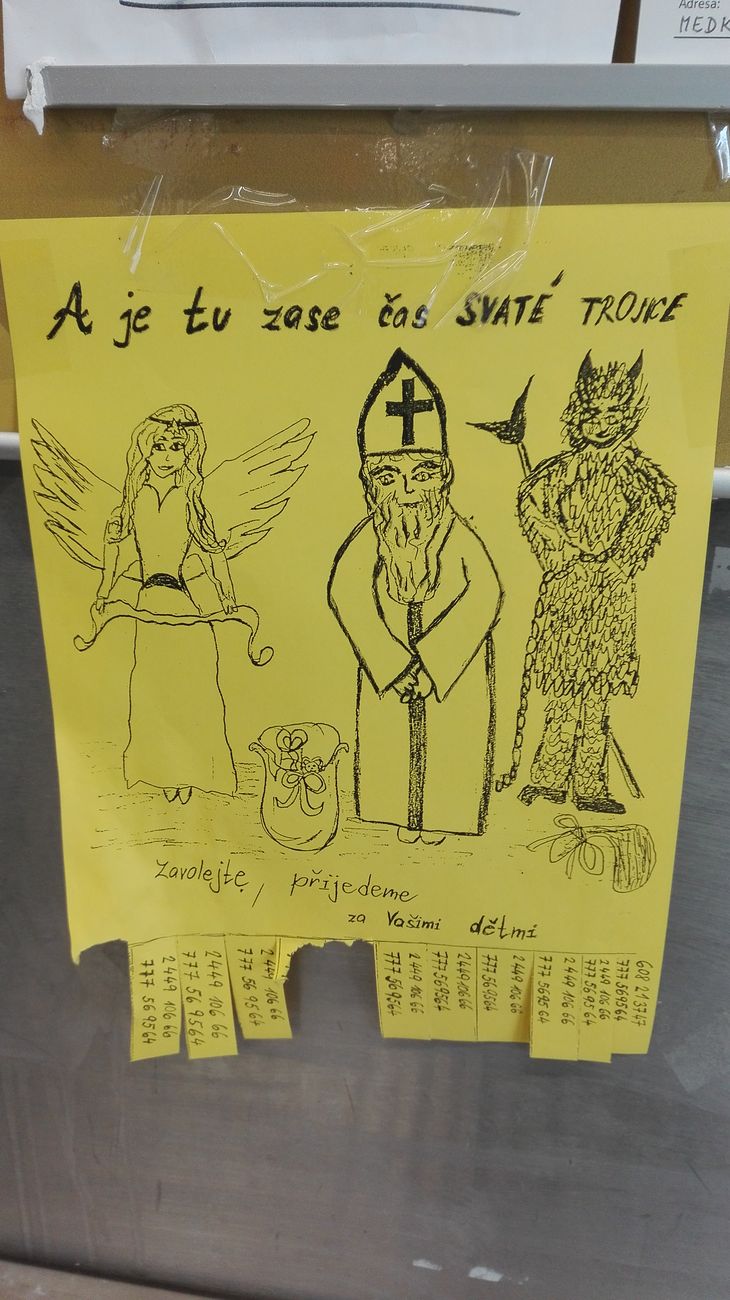 Adresa:
MEDK
A je tu zase čas SVATÉ TROJICE
Zavolejte, přijedeme
za Vašimi dětmi
2449 106 66
777 569564
2449 106 66
777 569564
2449 106 66
777 569564
2449 106 66
777 569564
2449 106 66
777 569564
2449 106 66
777 569564
2449 106 66
777 569564
2449 106 66
777 569564
608 213747
777 569564